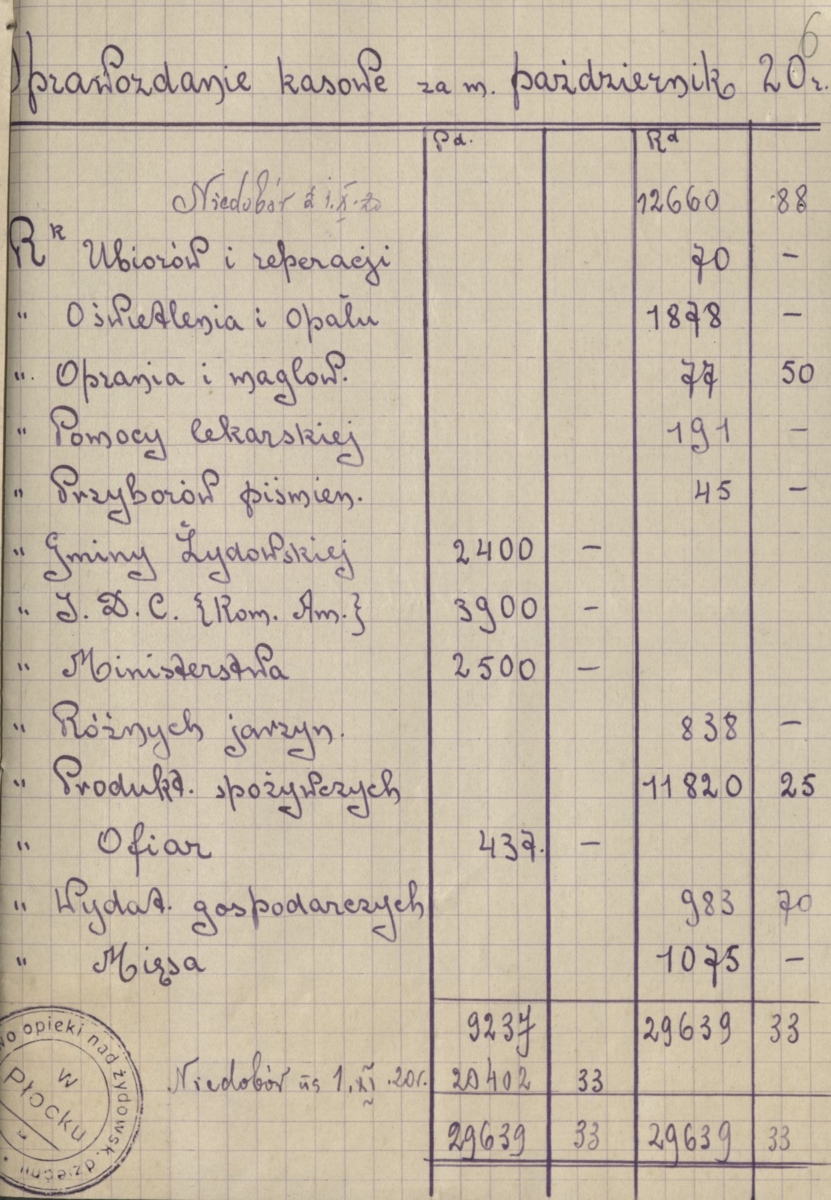 6
Sprawozdanie kasowe za m. październik 20 r.
Pd. Rd
Niedobór z 1.X.20 12660 88
Rk Ubiorów i reperacji 70 –
" Oświetlenia i opału 1878 –
" Oprania i maglow. 77 50
" Pomocy lekarskiej 191 –
" Przyborów piśmien. 45 –
" Gminy Żydowskiej 2400 –
" J. D. C. {Kom. Am.} 3900 –
" Ministerstwa 2500 –
" Różnych jarzyn. 838 –
" Produkt. spożywczych 11820 25
" Ofiar 437. –
" Wydat. gospodarczych 983 70
" Mięsa 1075 –
9237 29639 33
Niedobór na 1.XI.20r. 20402 33
29639 33 29639 33
wo opieki nad żydowsk. dziećmi
w
Płocku